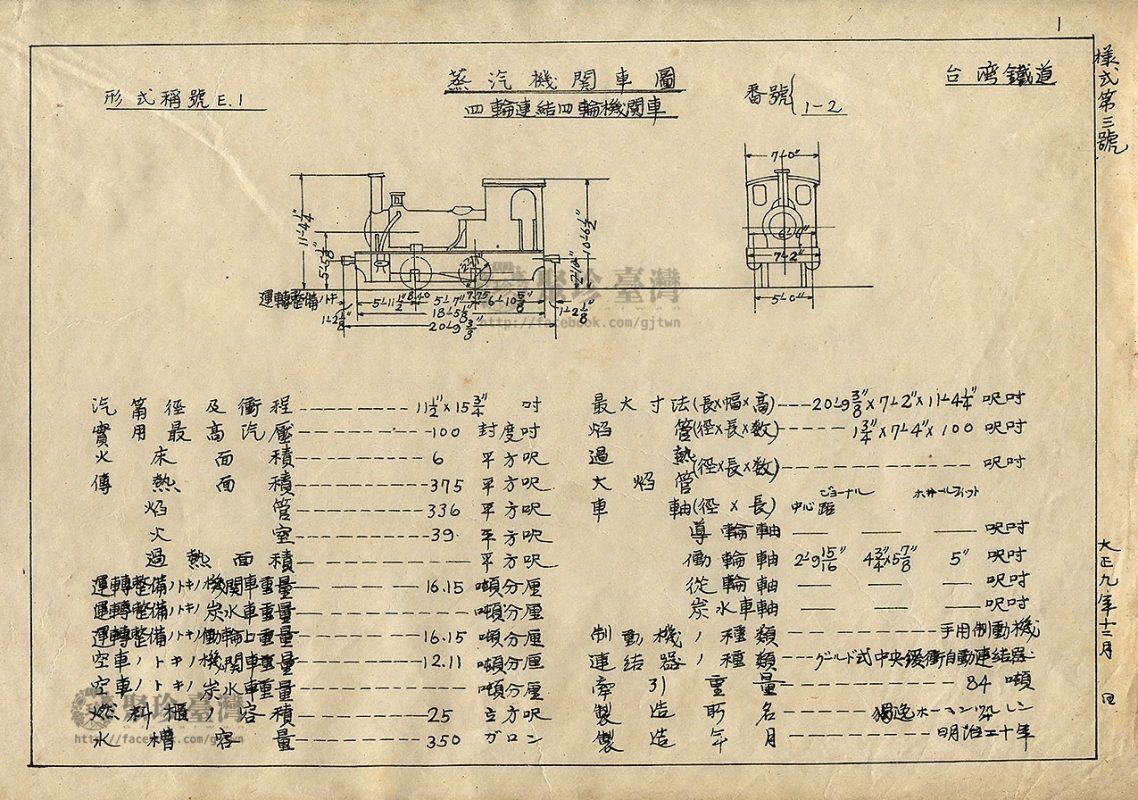 1
様式第三號
台湾鐵道
蒸汽機関車圖
四輪連結四輪機関車
形式稱號E.1
番號{1-2
7'-0"
11'-4 1/4"
5'-5 5/8"
10'-6 1/2"
6'-6"
7'-2"
5'-0"
運轉整備ノトキ
5'-11 1/2"
5'-7"
6'-10 5/8"
1'-2 1/8"
18'-5 1/8"
1'-2 1/8"
20'-9 3/8"
聚珍臺灣
http://facebook.com/gjtwn
汽筩徑及衝程 11 1/2"×15 3/4" 吋
實用最高汽壓 100 封度吋
火床面積 6 平方呎
傳熱面積 375 平方呎
焰管 336 平方呎
火室 39 平方呎
過熱面積 平方呎
運轉整備ノトキノ機関車重量 16.15 噸分厘
運轉整備ノトキノ炭水車重量 噸分厘
運轉整備ノトキノ働輪上重量 16.15 噸分厘
空車ノトキノ機関車重量 12.11 噸分厘
空車ノトキノ炭水車重量 噸分厘
燃料櫃ノ容積 25 立方呎
水槽容量 350 ガロン
聚珍臺灣
http://facebook.com/gjtwn
最大寸法(長×幅×高) 20'-9 3/8"×7'-2"×11'-4 1/4" 呎吋
焰管(徑×長×数) 1 3/4"×7'-4"×100 呎吋
過熱大焰管(徑×長×数) 呎吋
車軸(徑×長) 中心距 ジョーナル ホイールフィット
導輪軸 — — — 呎吋
働輪軸 2'-9 15/16" 4 3/4"×5 7/8" 5" 呎吋
從輪軸 — — — 呎吋
炭水車軸 — — — 呎吋
制動機ノ種類 手用制動機
連結器ノ種類 グールド式中央緩衝自動連結器
牽引重量 84 噸
製造所名 獨逸ホーヘンツルレン
製造年月 明治二十年
大正九年十二月 日